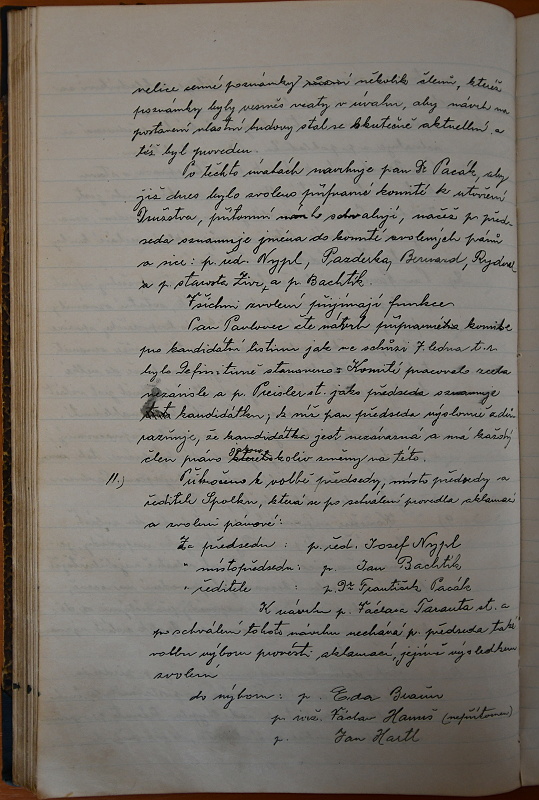 velice cenné poznámky několik členů, kteréž
poznámky byly vesměs vzaty v úvahu, aby návrh na
postavení vlastní budovy stal se skutečně aktuelní, a
též byl proveden.
Po těchto úvahách navrhuje pan Dr Pacák, aby
již dnes bylo zvoleno přípravné komité k utvoření
Družstva, přítomní schvalují, načež p. před-
seda oznamuje jména do komité zvolených pánů
a sice: p. řed. Nypl, Pazderka, Bernard, Rydval
p. starosta Živr, a p. Bachtík.
Všichni zvolení přijímají funkce.
Pan Pavlovec čte návrh přípravného komitée
pro kandidátní listinu jak ve schůzi 7. ledna t. r.
bylo definitivně stanoveno: Komité pracovalo zcela
nezávisle a p. Preisler st. jako předseda oznamuje
kandidátku; k níž pan předseda výslovně zdů-
razňuje, že kandidátka jest nezávazná a má každý
člen právo jakékoliv změny na této.
11.) Přikročeno k volbě předsedy, místopředsedy a
ředitele Spolku, která se po schválení provedla aklamací
a zvoleni pánové:
Za předsedu: p. řed. Josef Nypl
" místopředsedu: p. Jan Bachtík
" ředitele : p. Dr František Pacák
K návrhu p. Václava Taranta st. a
po schválení tohoto návrhu nechává p. předseda také
volbu výboru provésti aklamací, jejímž výsledkem
zvoleni
do výboru: p. Eda Braun
p. Václav Hanuš (nepřítomen)
p. Jan Hartl